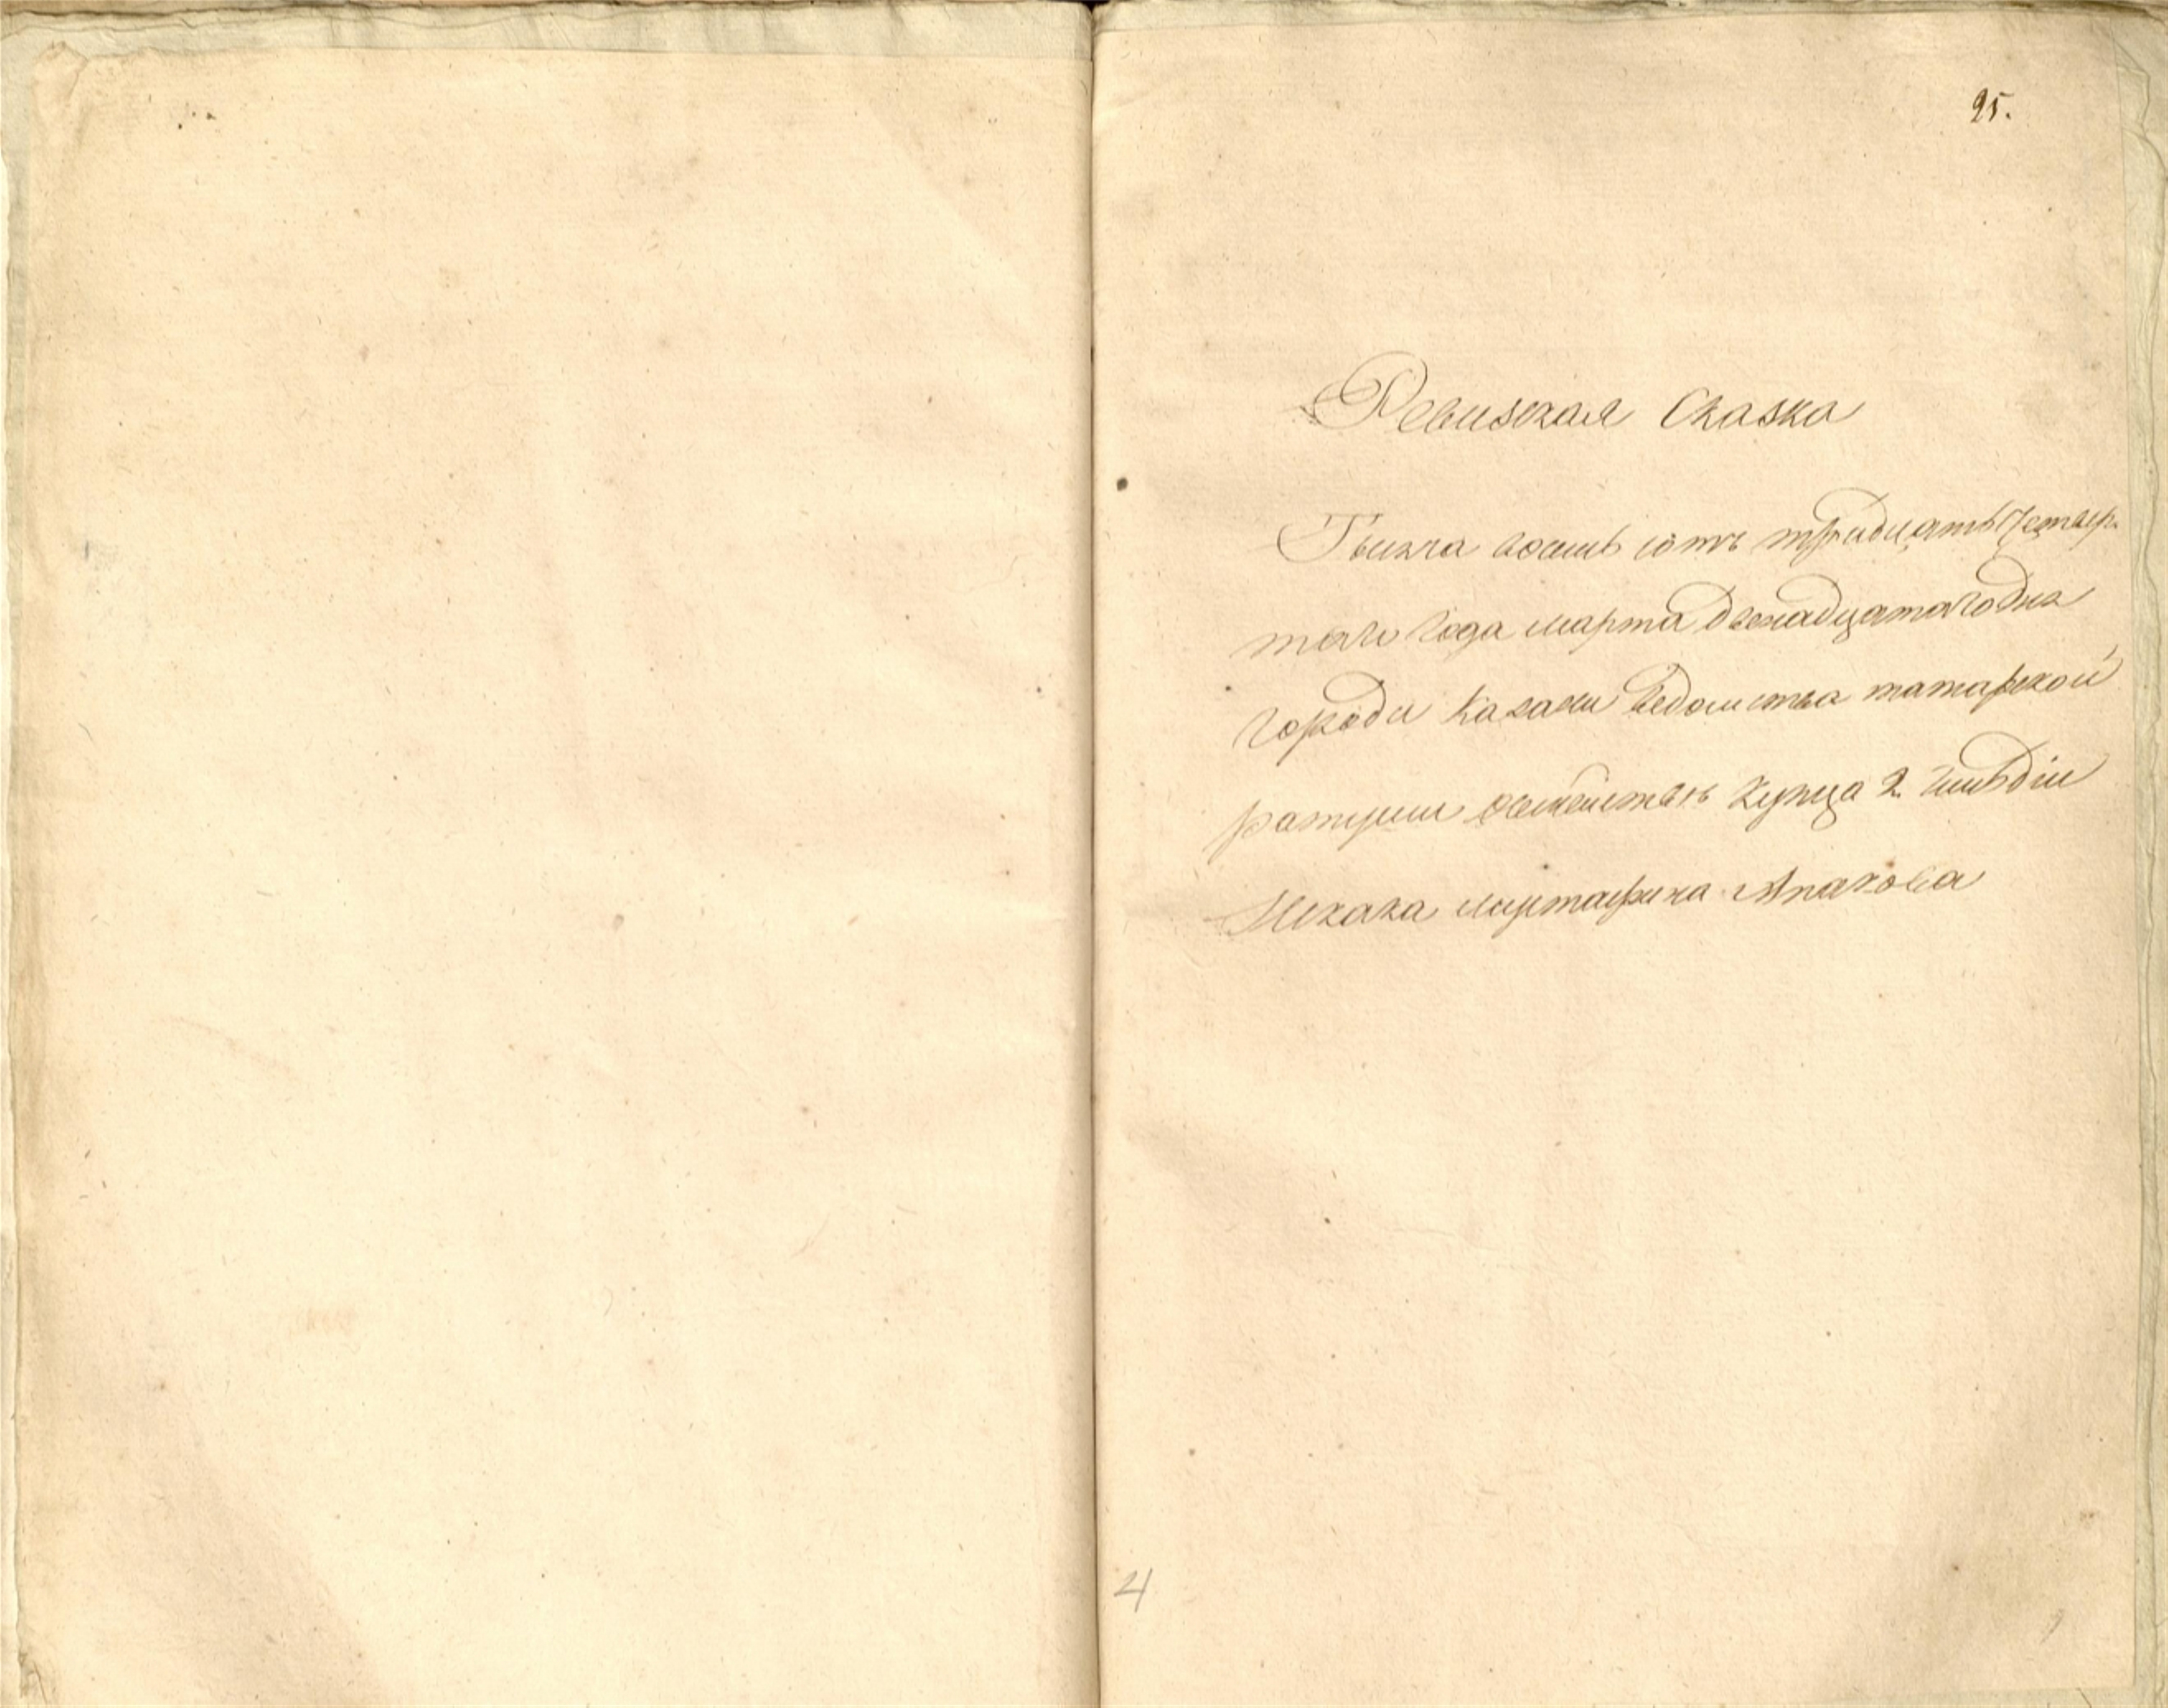 25.
Ревизская Сказка
Тысяча восемь сотъ тридцать четвер-
таго года марта двенадцатаго дня
города Казани ведомства татарской
ратуши о семействѣ купца 2 гильдіи
Исхака Мустафина Апакова
4